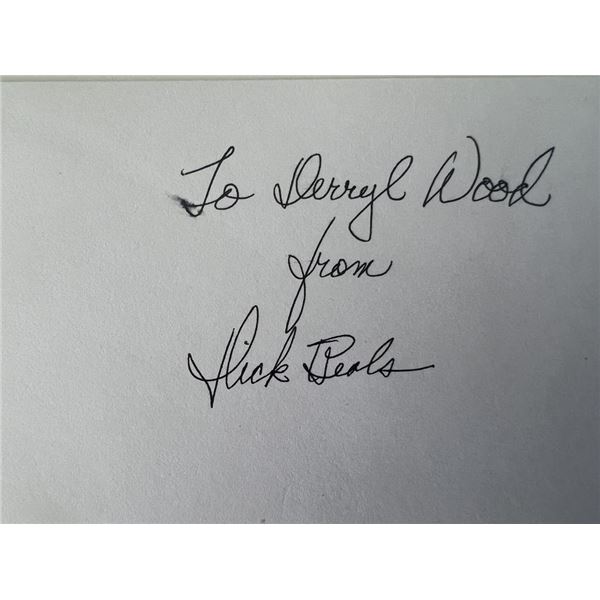 To Derryl Wood
from
Dick Beals